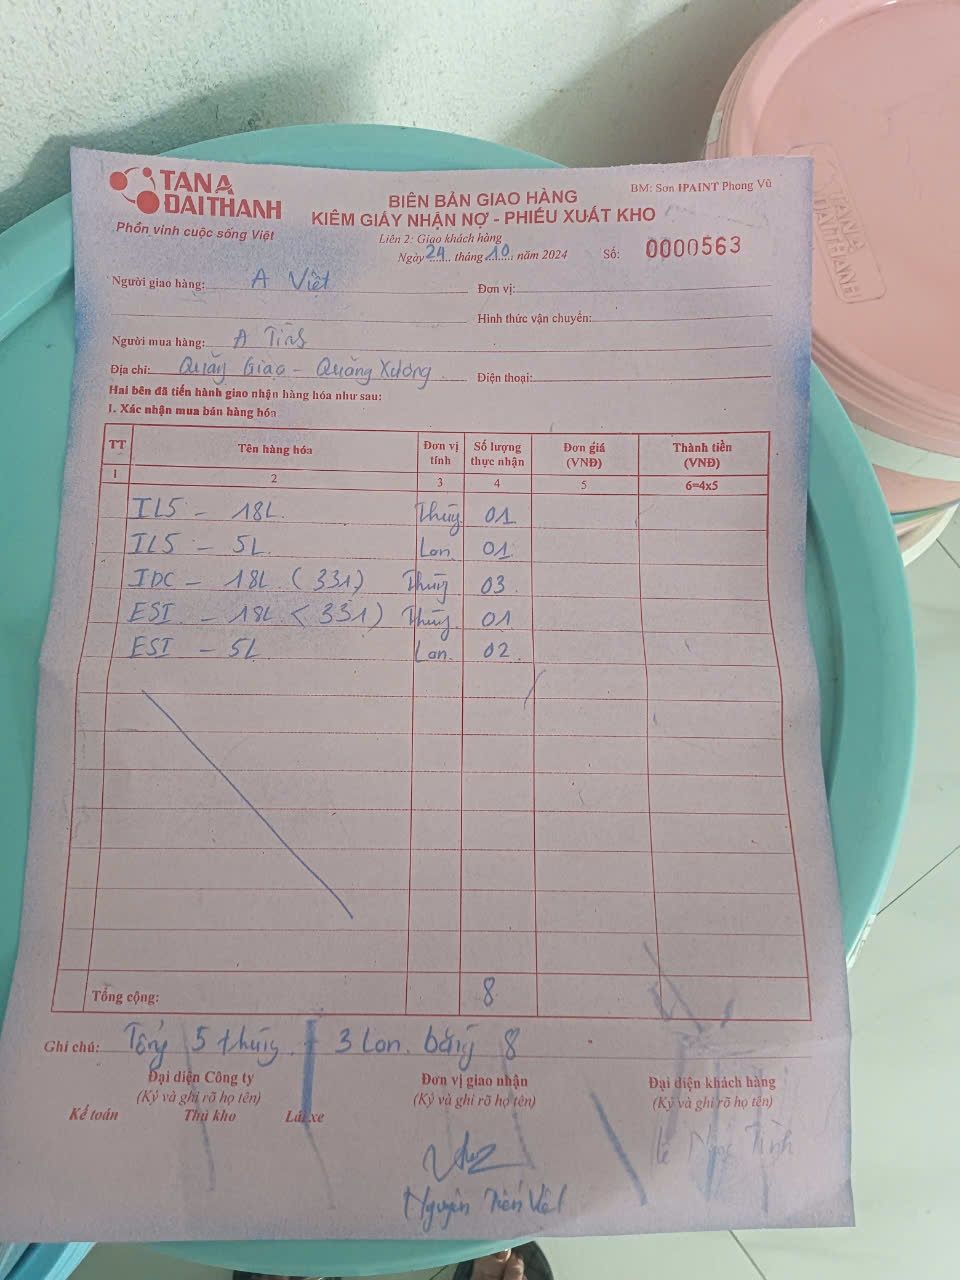 TANA
ĐẠI THÀNH
Phồn vinh cuộc sống Việt
BM: Sơn IPAINT Phong Vũ
BIÊN BẢN GIAO HÀNG
KIÊM GIẤY NHẬN NỢ - PHIẾU XUẤT KHO
Liên 2: Giao khách hàng
Ngày 24 tháng 10 năm 2024
Số: 0000563
Người giao hàng: A Việt
Đơn vị:
Hình thức vận chuyển:
Người mua hàng: A Tình
Địa chỉ: Quảng Giao - Quảng Xương
Điện thoại:
Hai bên đã tiến hành giao nhận hàng hóa như sau:
1. Xác nhận mua bán hàng hóa
TT Tên hàng hóa Đơn vị tính Số lượng thực nhận Đơn giá (VNĐ) Thành tiền (VNĐ)
1 2 3 4 5 6=4x5
IL5 - 18L Thùng 01
IL5 - 5L Lon 01
IDC - 18L (331) Thùng 03
ESI - 18L (331) Thùng 01
ESI - 5L Lon 02
Tổng cộng: 8
Ghi chú: Tổng 5 thùng + 3 lon bằng 8
Đại diện Công ty Đơn vị giao nhận Đại diện khách hàng
(Ký và ghi rõ họ tên) (Ký và ghi rõ họ tên) (Ký và ghi rõ họ tên)
Kế toán Thủ kho Lái xe
Nguyễn Tiến Việt
Lê Ngọc Tình
TANA
ĐẠI THÀNH